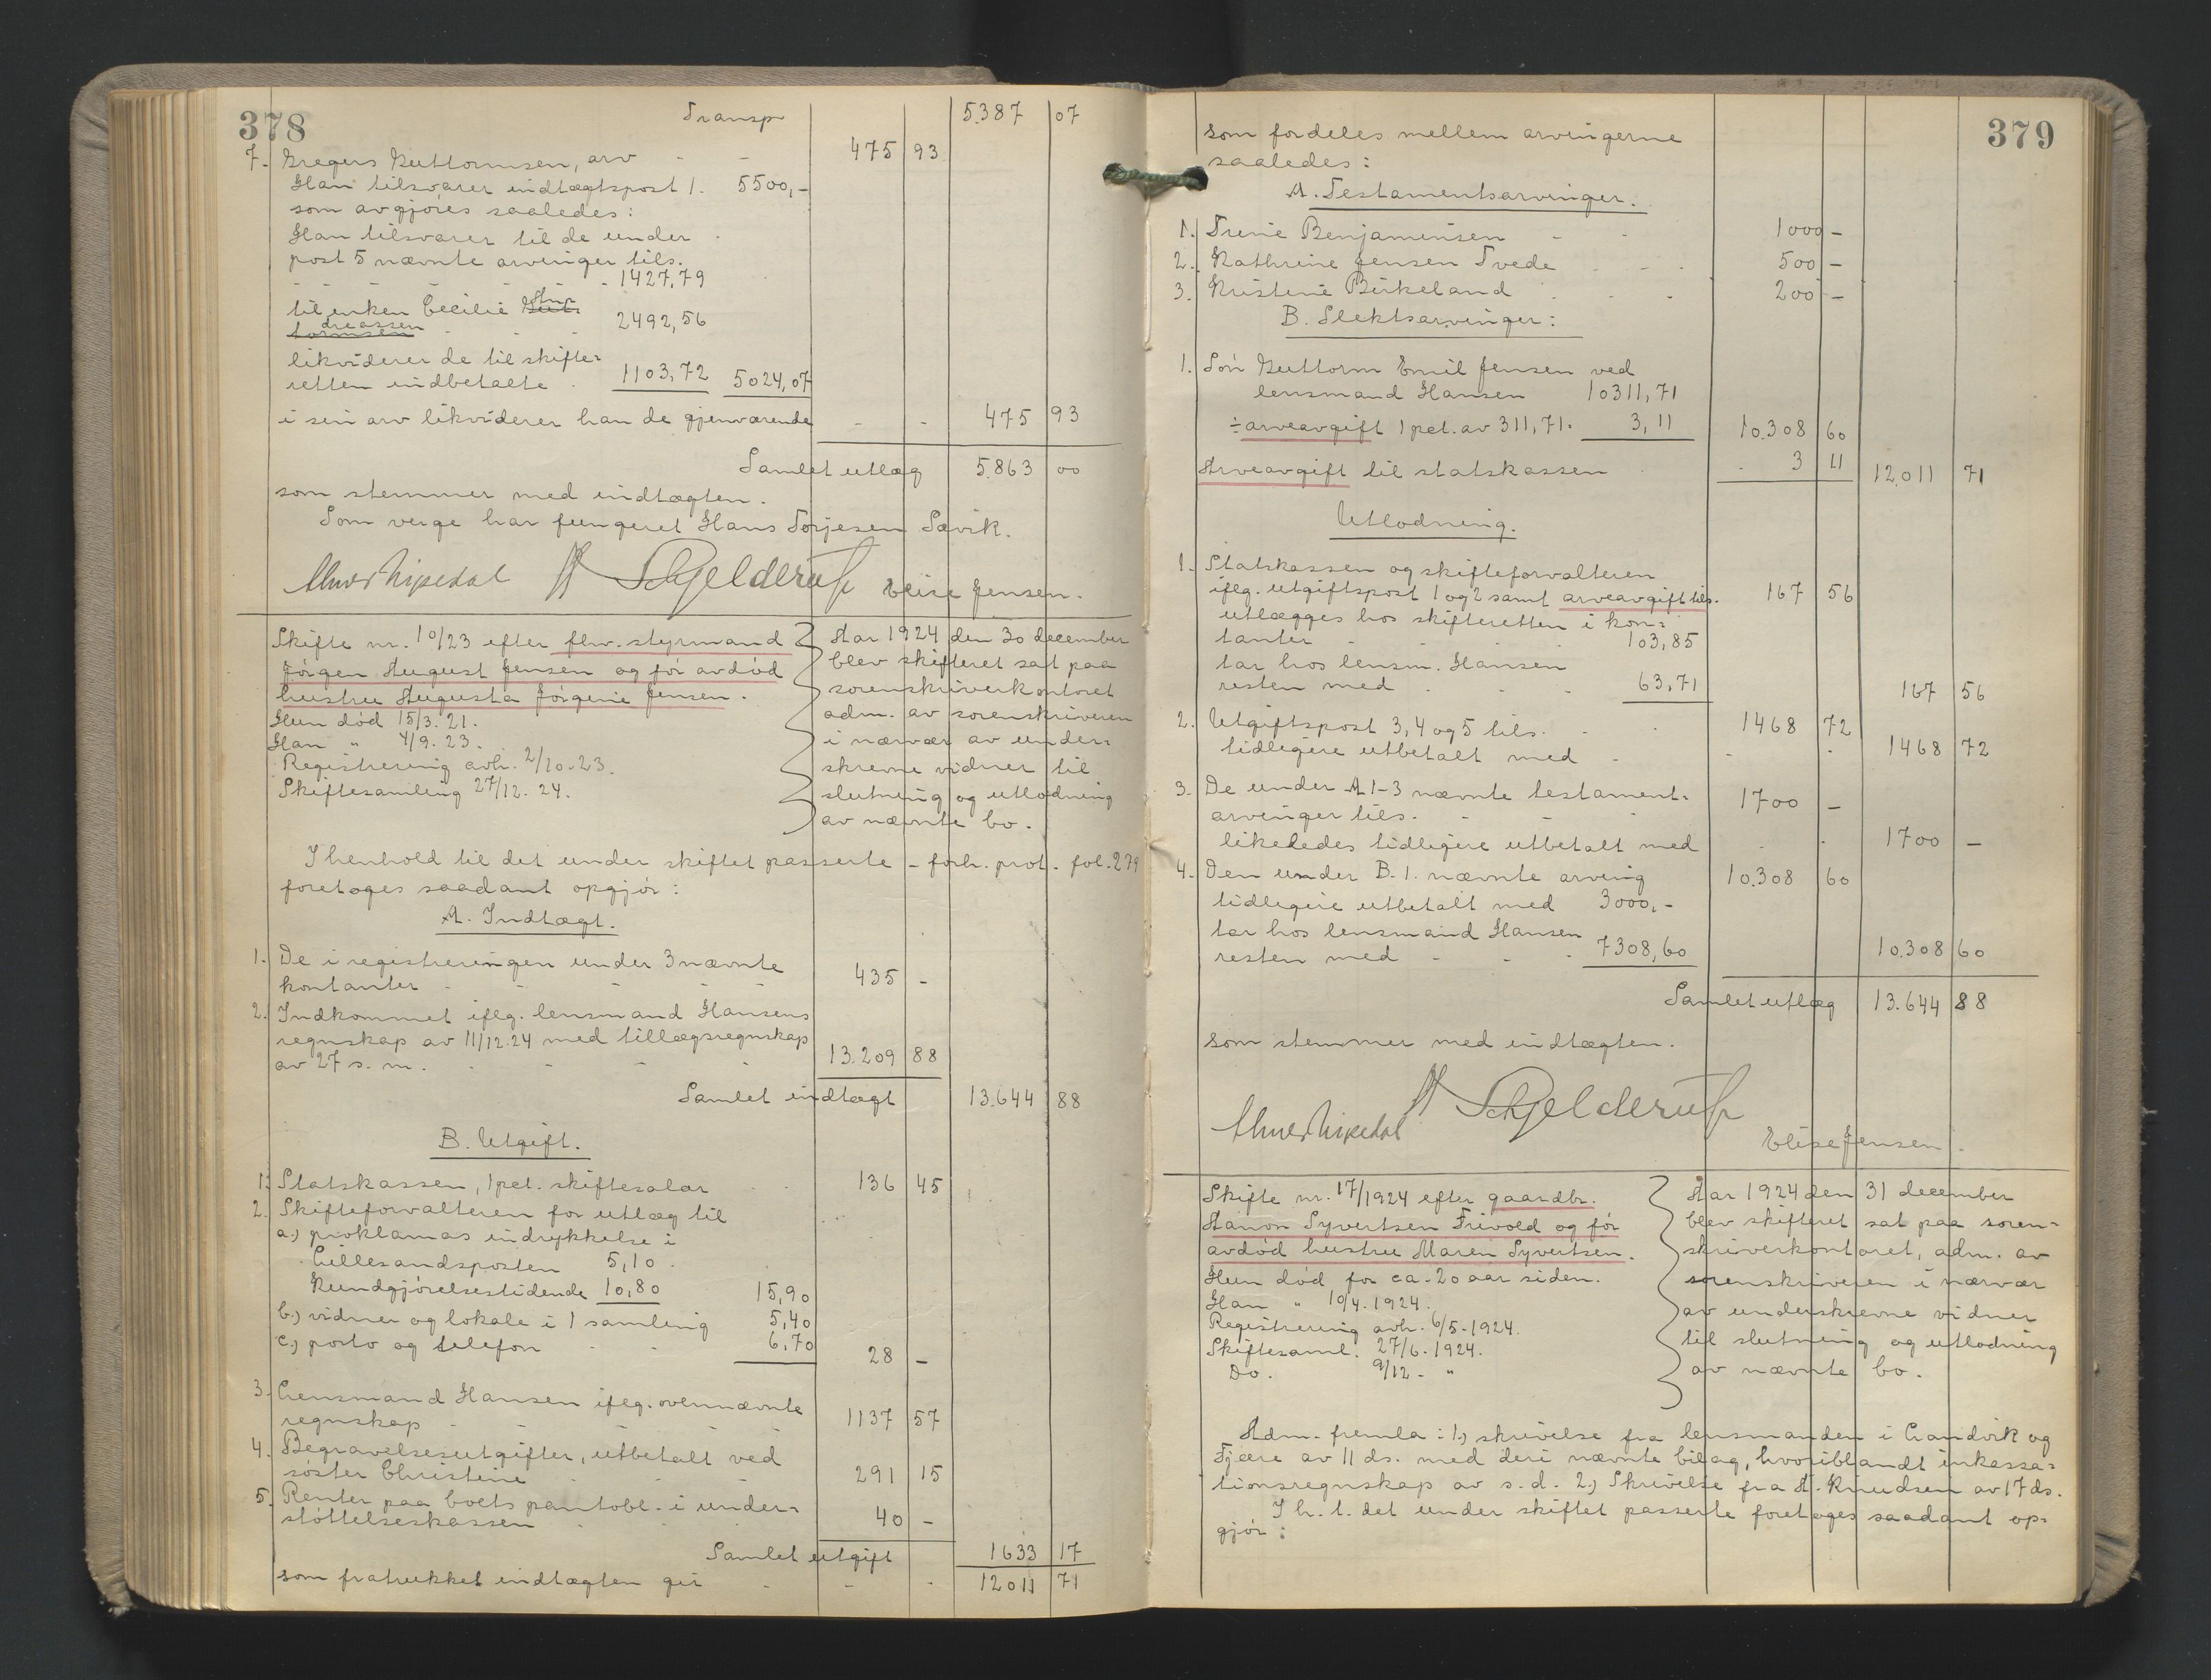 378
Transp 5387 07
7. Gregers Guttormsen, arv - - 475 93
Han tilsvarer indtægtspost 1. 5500,-
som avgjøres saaledes:
Han tilsvarer til de under
post 5 nævnte arvinger tils.
- - - - - 1427,79
til enken Cecilie Gut- An-
tormsen dreassen - - 2492,56
likviderer de til skifte-
retten indbetalte . 1103,72 5024,07
i sin arv likviderer han de gjenværende - - 475 93
Samlet utlæg 5863 00
som stemmer med indtægten.
Som verge har fungeret Hans Torjesen Søvik.
Schjelderup Elise Jensen.
Skifte nr. 10/23 efter fhv. styrmand
Jørgen August Jensen og før avdød
hustru Augusta Jørgine Jensen.
Hun død 15/3. 21.
Han " 4/9. 23.
Registrering avh. 2/10-23.
Skiftesamling 27/12. 24.
Aar 1924 den 30 december
blev skifteret sat paa
sorenskriverkontoret
adm. av sorenskriveren
i nærvær av under-
skrevne vidner til
slutning og utlodning
av nævnte bo.
I henhold til det under skiftet passerte - forh. prot. fol. 279
foretages saadant opgjør:
A. Indtægt.
1. De i registreringen under 3 nævnte
kontanter - - - - 435 -
2. Indkommet iflg. lensmand Hansens
regnskap av 11/12.24 med tillægsregnskap
av 27 s. m. - - - 13.209 88
Samlet indtægt 13.644 88
B. Utgift.
1. Statskassen, 1 pct. skiftesalær 136 45
2. Skifteforvalteren for utlæg til
a.) proklamas indrykkelse i
Lillesandsposten 5,10
Kundgjørelsestidende 10,80 15,90
b.) vidner og lokale i 1 samling 5,40
c.) porto og telefon - - 6,70 28 -
3. Lensmand Hansen iflg. ovennævnte
regnskap - - - - 1137 57
4. Begravelsesutgifter, utbetalt ved
søster Christine - - - 291 15
5. Renter paa boets pantobl. i under-
støttelseskassen - - 40 -
Samlet utgift 1633 17
som fratrukket indtægten gir - - - 12011 71
379
som fordeles mellem arvingerne
saaledes:
A. Testamentsarvinger.
1. Trine Benjaminsen - - 1000 -
2. Kathrine Jensen Tvede - - - 500 -
3. Kristine Birkeland - - 200 -
B. Slektsarvinger:
1. Søn Guttorm Emil Jensen ved
lensmand Hansen 10311,71
÷ arveavgift 1 pct. av 311,71. 3,11 10.308 60
Arveavgift til statskassen - 3 11 12.011 71
Utlodning.
1. Statskassen og skifteforvalteren
iflg. utgiftspost 1 og 2 samt arveavgift tils. 167 56
utlægges hos skifteretten i kon-
tanter - - - 103,85
tar hos lensm. Hansen
resten med - - - 63,71 167 56
2. Utgiftspost 3, 4 og 5 tils. - - 1468 72
tidligere utbetalt med - - - 1468 72
3. De under A 1-3 nævnte testament-
arvinger tils. - - - 1700 -
likeledes tidligere utbetalt med - - 1700 -
4. Den under B. 1. nævnte arving 10.308 60
tidligere utbetalt med 3000,-
tar hos lensmand Hansen
resten med - - - 7308,60 10.308 60
Samlet utlæg 13.644 88
som stemmer med indtægten.
Schjelderup
Elise Jensen.
Skifte nr. 17/1924 efter gaardbr.
Aanon Syvertsen Frivold og før
avdød hustru Maren Syvertsen.
Hun død for ca. 20 aar siden.
Han " 10/4. 1924.
Registrering avh. 6/5-1924.
Skiftesaml. 27/6-1924.
Do. 9/12 - "
Aar 1924 den 31 december
blev skifteret sat paa soren-
skriverkontoret, adm. av
sorenskriveren i nærvær
av underskrevne vidner
til slutning og utlodning
av nævnte bo.
Adm. fremla: 1.) skrivelse fra lensmanden i Landvik og
Fjære av 11 ds. med deri nævnte bilag, hvoriblandt inkassa-
tionsregnskap av s. d. 2.) Skrivelse fra A. Knudsen av 17 ds.
I h. t. det under skiftet passerte foretages saadant op-
gjør: